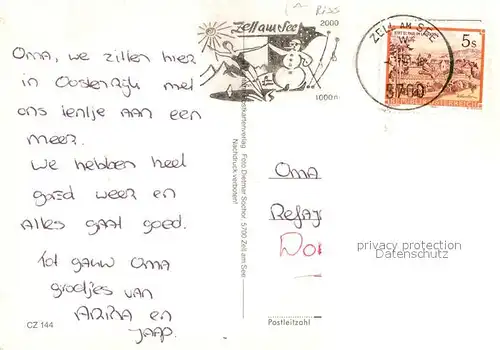 Oma, we zitten hier
in Oostenrijk met
ons tentje aan een
meer.
We hebben heel
goed weer en
Alles gaat goed.
Tot gauw Oma
groetjes van
en
Jaap.
CZ 144
Zell am See
2000
1000 m
ZELL AM SEE
5700
5 s
Foto Dietmar Sochor, 5700 Zell am See
Nachdruck verboten!
Oma
privacy protection
Datenschutz
Postleitzahl